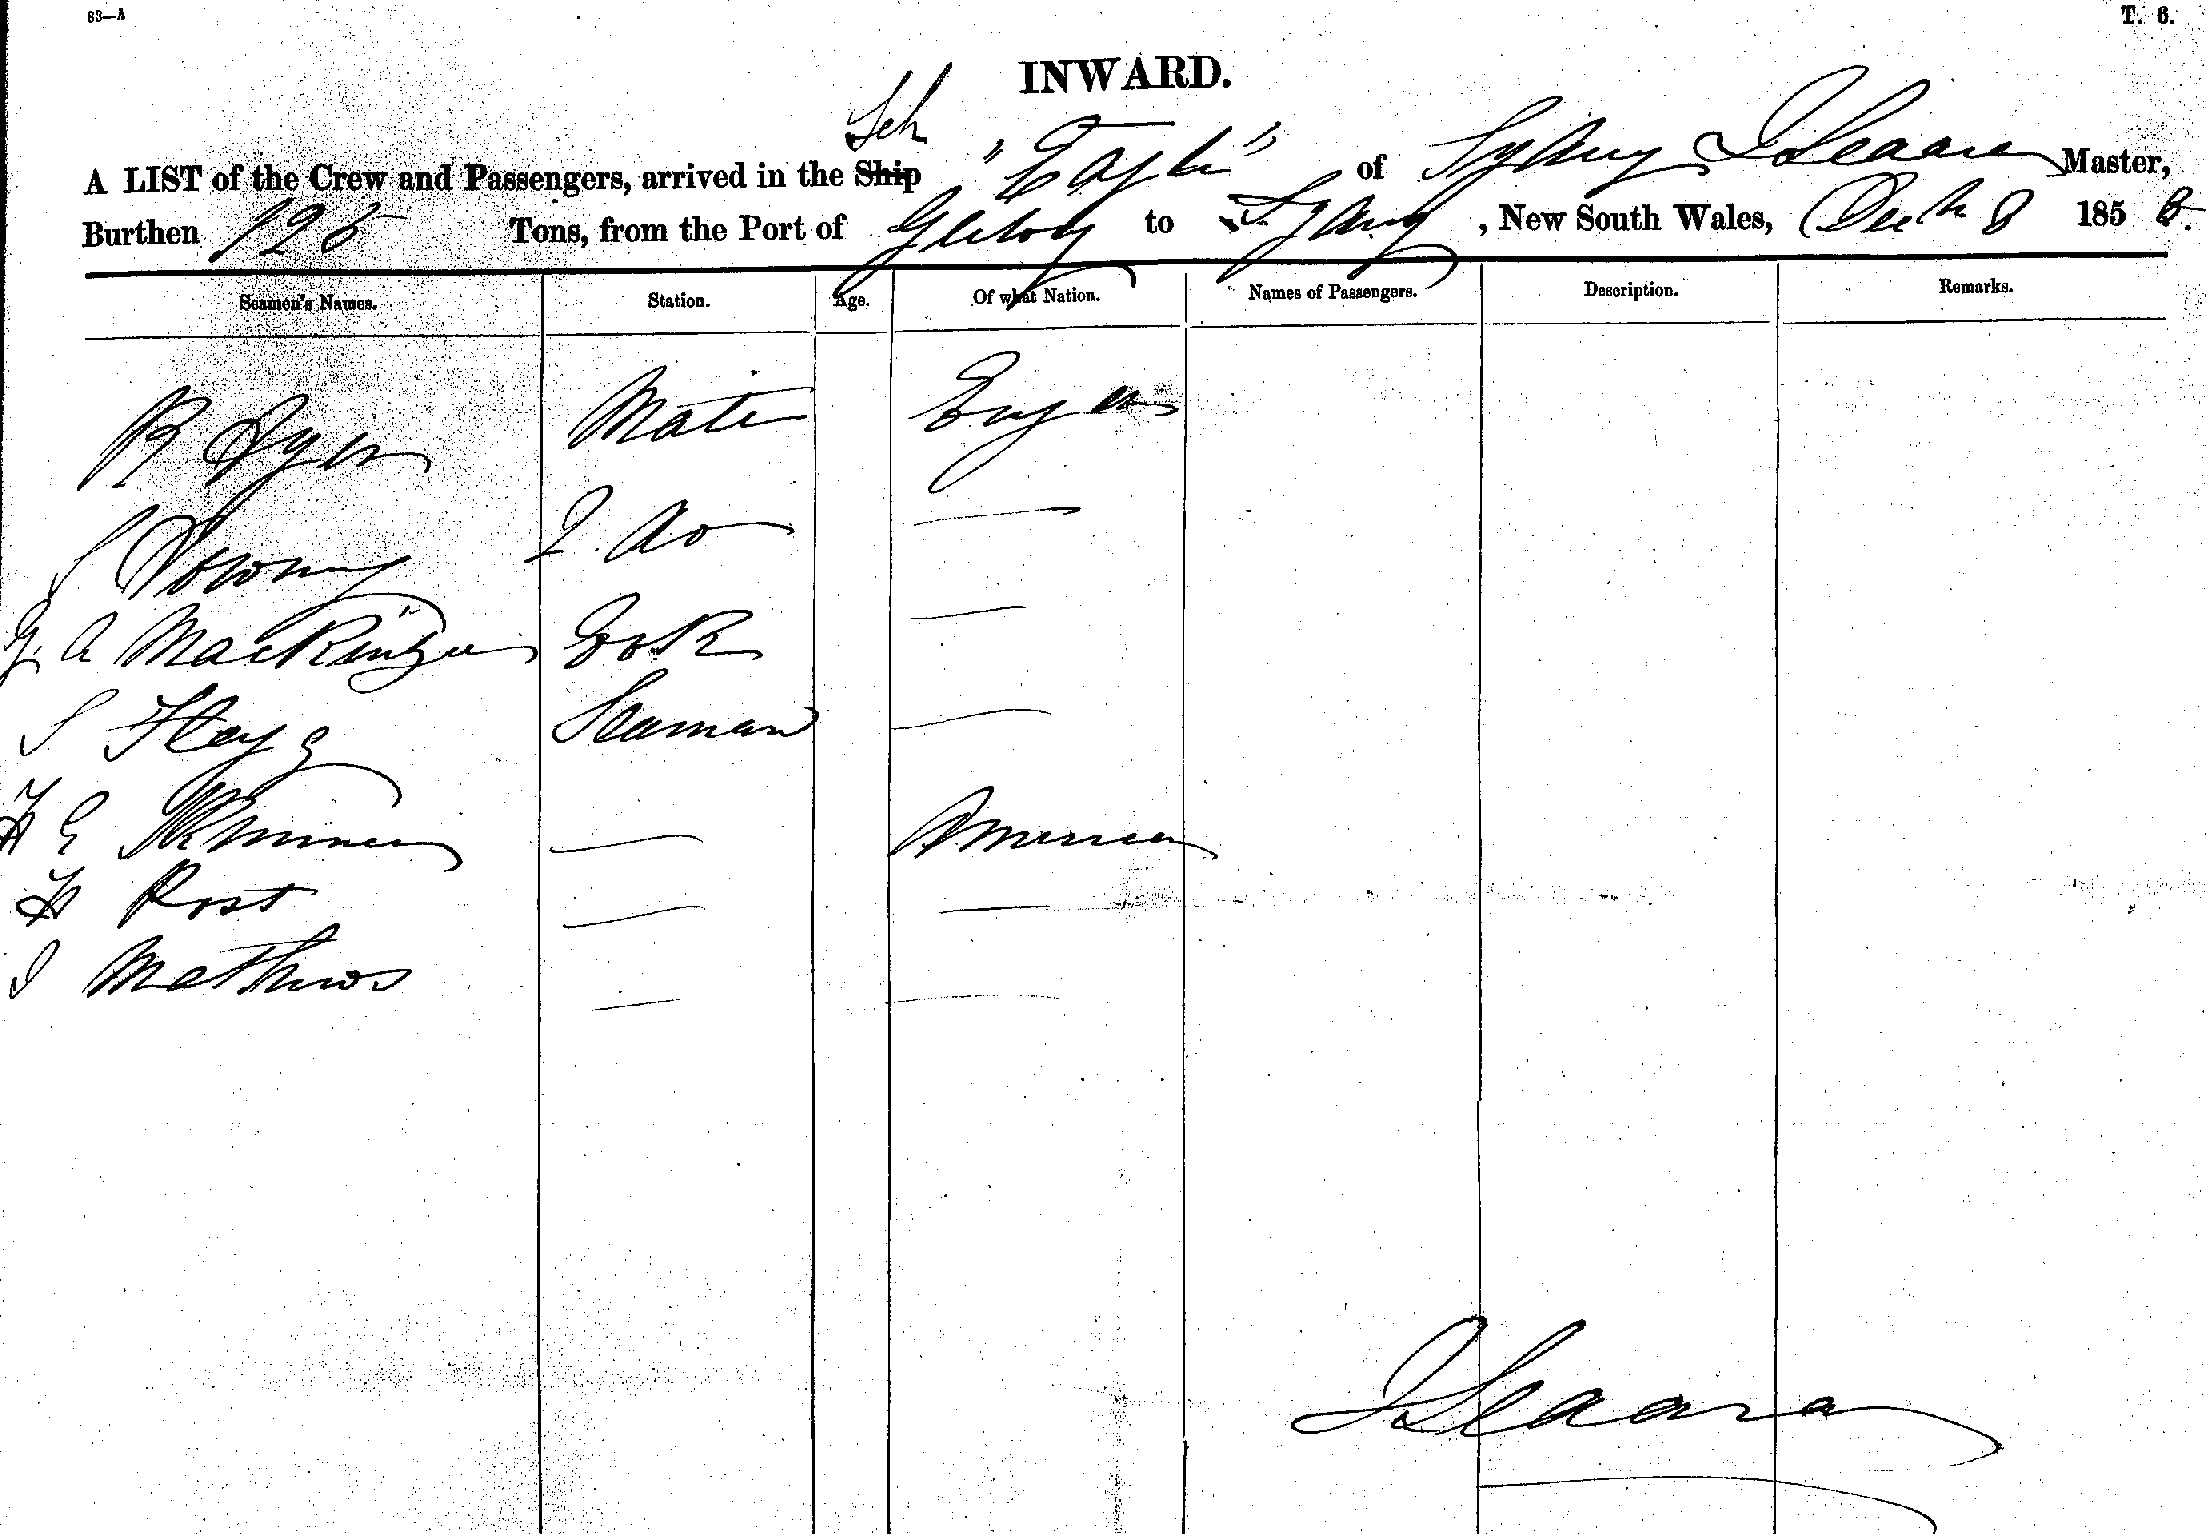 83—A
T. 6.
INWARD.
Sch
A LIST of the Crew and Passengers, arrived in the Ship "Eagle" of Sydney Master,
Burthen 126 Tons, from the Port of to Sydney, New South Wales, Dec 8 1858.
Seamen's Names. Station. Age. Of what Nation. Names of Passengers. Description. Remarks.
R Dyer Mate
2. do —
A MacKenzie Cook —
S Seaman —
— American
H Post — —
J Mathews — —